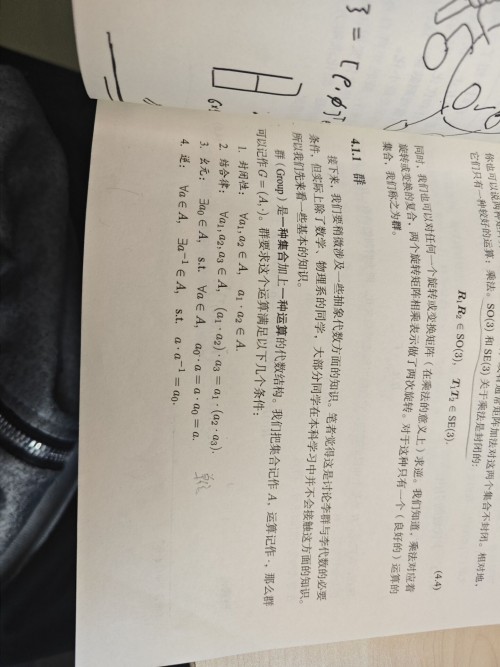 它们只有一种较好的运算：乘法。SO(3) 和 SE(3) 关于乘法是封闭的：
R₁R₂ ∈ SO(3), T₁T₂ ∈ SE(3). (4.4)
同时，我们也可以对任何一个旋转或变换矩阵（在乘法的意义上）求逆。我们知道，乘法对应着
旋转或变换的复合，两个旋转矩阵相乘表示做了两次旋转。对于这种只有一个（良好的）运算的
集合，我们称之为群。
4.1.1 群
接下来，我们要稍微涉及一些抽象代数方面的知识。笔者觉得这是讨论李群与李代数的必要
条件，但实际上除了数学、物理系的同学，大部分同学在本科学习中并不会接触这方面的知识。
所以我们先来看一些基本的知识。
群（Group）是一种集合加上一种运算的代数结构。我们把集合记作 A，运算记作 ·，那么群
可以记作 G = (A, ·)。群要求这个运算满足以下几个条件：
1. 封闭性： ∀a₁, a₂ ∈ A, a₁ · a₂ ∈ A.
2. 结合律： ∀a₁, a₂, a₃ ∈ A, (a₁ · a₂) · a₃ = a₁ · (a₂ · a₃).
3. 幺元： ∃a₀ ∈ A, s.t. ∀a ∈ A, a₀ · a = a · a₀ = a.
4. 逆： ∀a ∈ A, ∃a⁻¹ ∈ A, s.t. a · a⁻¹ = a₀.